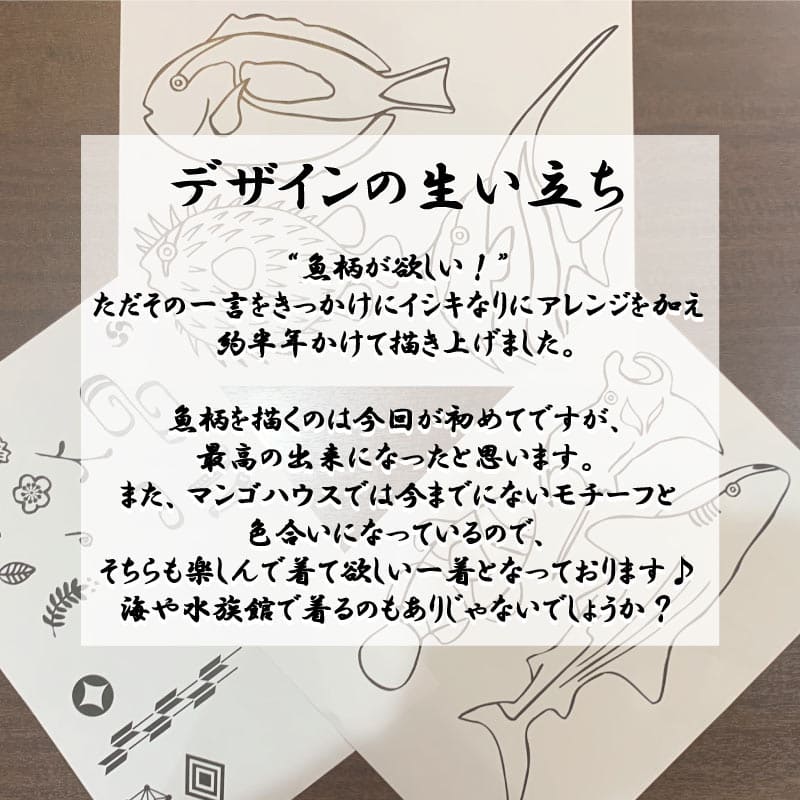 デザインの生い立ち
“魚柄が欲しい！”
ただその一言をきっかけにイシキなりにアレンジを加え
約半年かけて描き上げました。
魚柄を描くのは今回が初めてですが、
最高の出来になったと思います。
また、マンゴハウスでは今までにないモチーフと
色合いになっているので、
そちらも楽しんで着て欲しい一着となっております♪
海や水族館で着るのもありじゃないでしょうか？